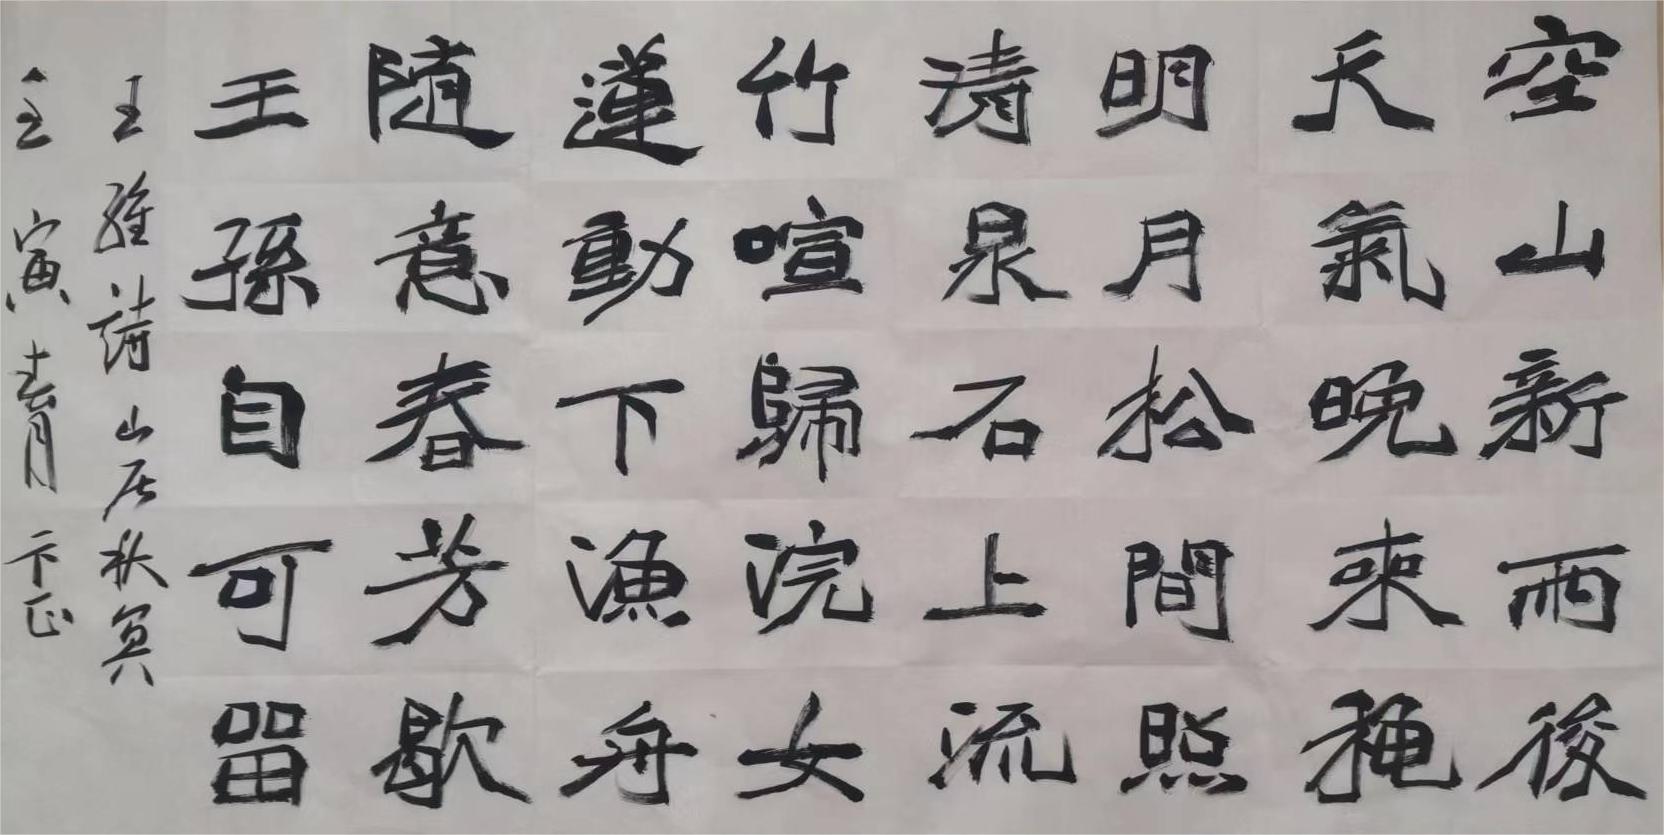 空山新雨後
天氣晚來穐
明月松間照
清泉石上流
竹喧歸浣女
蓮動下漁舟
隨意春芳歇
王孫自可留
王維詩山居秋冥
壬寅春月卞正